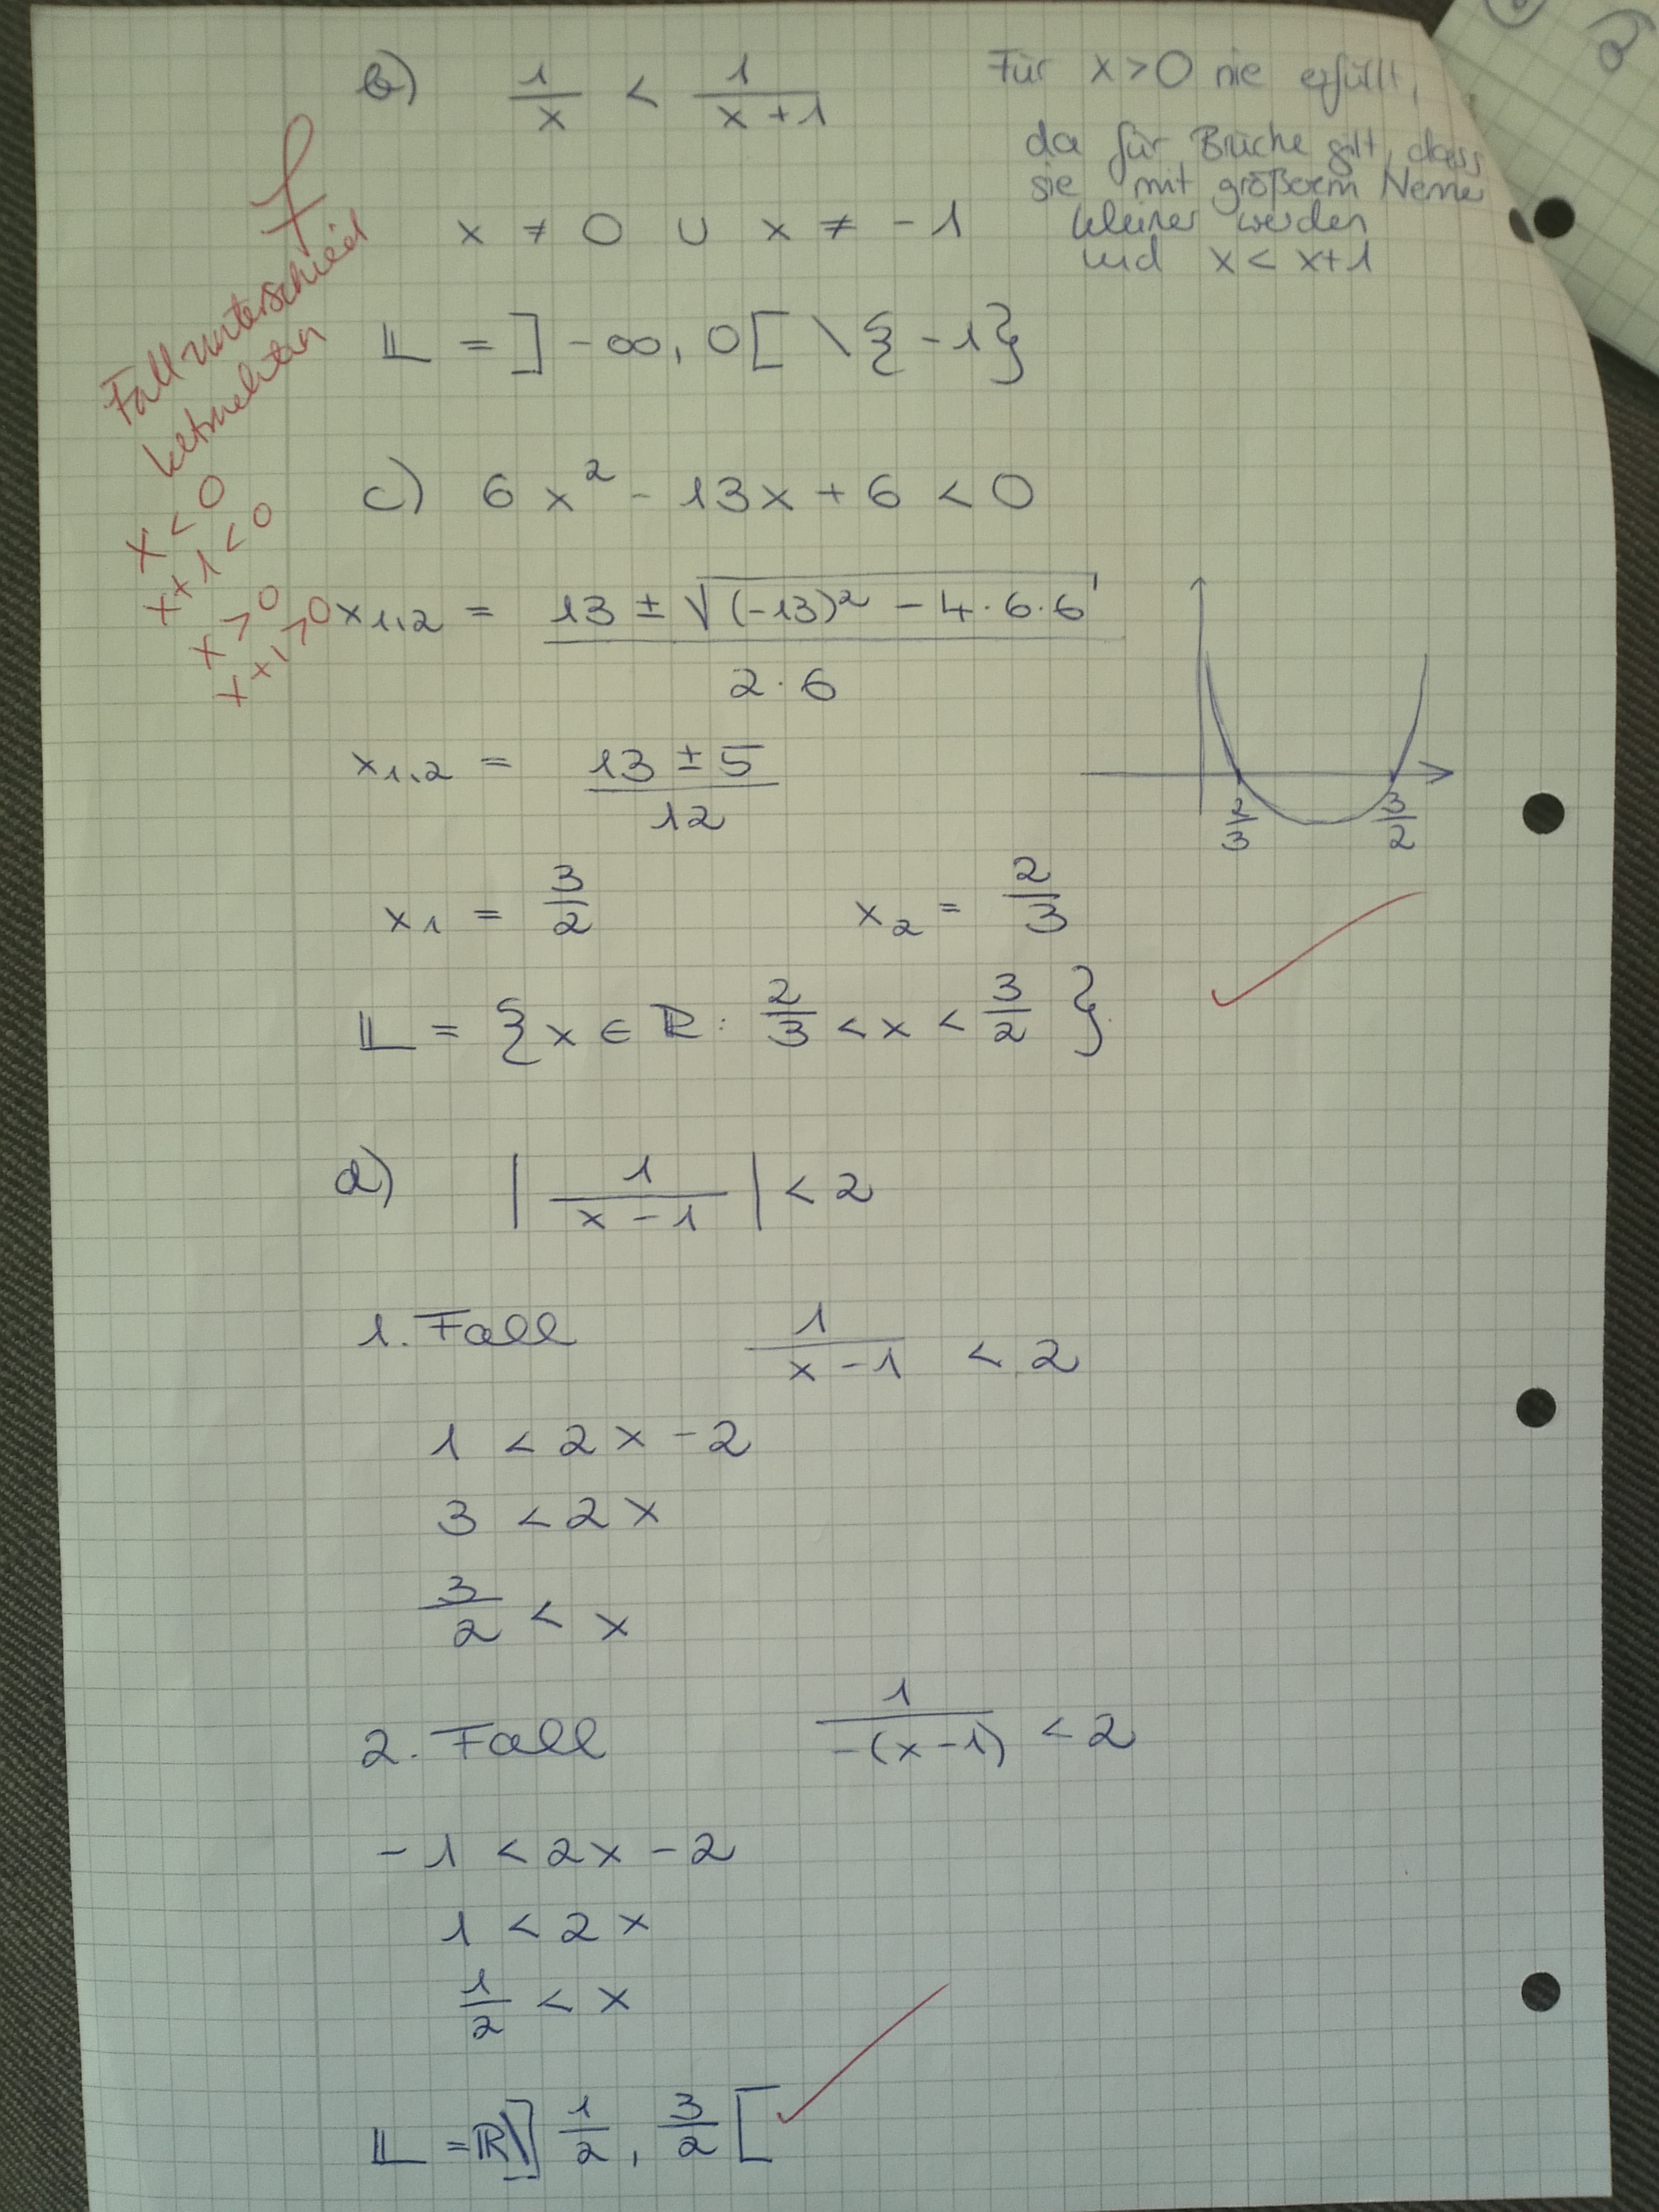 b) 1/x < 1/(x+1)
Für x>0 nie erfüllt,
da für Brüche gilt, dass
sie mit größerem Nenne
kleiner werden
und x < x+1
x ≠ 0 ∪ x ≠ -1
𝕃 = ]-∞, 0[ \ {-1}
f
Fallunterschied
x < 0
x+1 < 0
x > 0
x+1 > 0
c) 6x² - 13x + 6 < 0
x1,2 = (13 ± √((-13)² - 4·6·6)) / (2·6)
x1,2 = (13 ± 5)/12
2/3 3/2
x1 = 3/2 x2 = 2/3
𝕃 = {x ∈ ℝ: 2/3 < x < 3/2}
d) |1/(x-1)| < 2
1. Fall 1/(x-1) < 2
1 < 2x - 2
3 < 2x
3/2 < x
2. Fall 1/(-(x-1)) < 2
-1 < 2x - 2
1 < 2x
1/2 < x
𝕃 = ℝ\]1/2, 3/2[